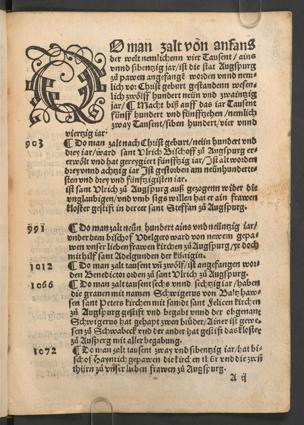 DO man zalt von anfang
der welt nemlichenn vier Tausent / ains
vnnd sibentzig iar / ist die stat Augspurg
zů pawen angefangẽ worden vnnd nem-
lich vor Christ geburt gestandenn wesenn-
lich zwölff hundert neün vnd zwaintzig
iar / ¶ Macht biß auff das iar Tausent
fünff hundert vnd fünfftzehen / nemlich
zway Tausent / siben hundert / vier vnnd
viertzig iar·
903 ¶ Do man zalt nach Christ geburt / nein hundert vnd
drey iar / ward sant Vlrich Bischoff zů Augspurg er-
wölt vnd hat gereygiert fünfftzig iar / Ist alt worden
drey vnnd achtzig iar Ist gestorben am neünhunderto-
sten vnd drey vnd fünfftzigisten iar.
ist sant Vlrich zů Augspurg auß gezogenn wider die
vnglaubigen / vnd vmb sigs willen hat er ain frawen
kloster gestifft in der eer sant Steffan zů Augspurg.
991 ¶ Do man zalt neün hundert ains vnd neüntzig iar /
vnder dem bischof Volgeero ward von nerem gepa-
wen vnser lieben frawen kirchen zů Augspurg / ye doch
mit hilf sant Adelgunden der künigin.
1012 ¶ Do man zalt tausent vñ zwölff / ist angefangen wor-
den Benedicter orden zů sant Vlrich zů Augspurg.
1066 ¶ Do man zalt tausent sechs vnnd sechtzig iar / haben
die grauen mit namen Schwigerus von Balßhaw-
sen sant Peters kirchen mit samdt sant Felicen kirchen
zů Augspurg gestifft vnd begabt vnnd der obgenant
Schwigerus hat gehapt zwen brüder / Ainer ist gewe-
sen zů Schwabeck vnd der ander hat gestifft das closter
zů Ausperg mit aller begabung.
1072 ¶ Do man zalt tausent zway vnd sibentzig iar / hat bi-
schof Haynrich gepawen die kirchen thür vnd die zwen
thürn zů vnser lieben frawen zů Augspurg.
A ij